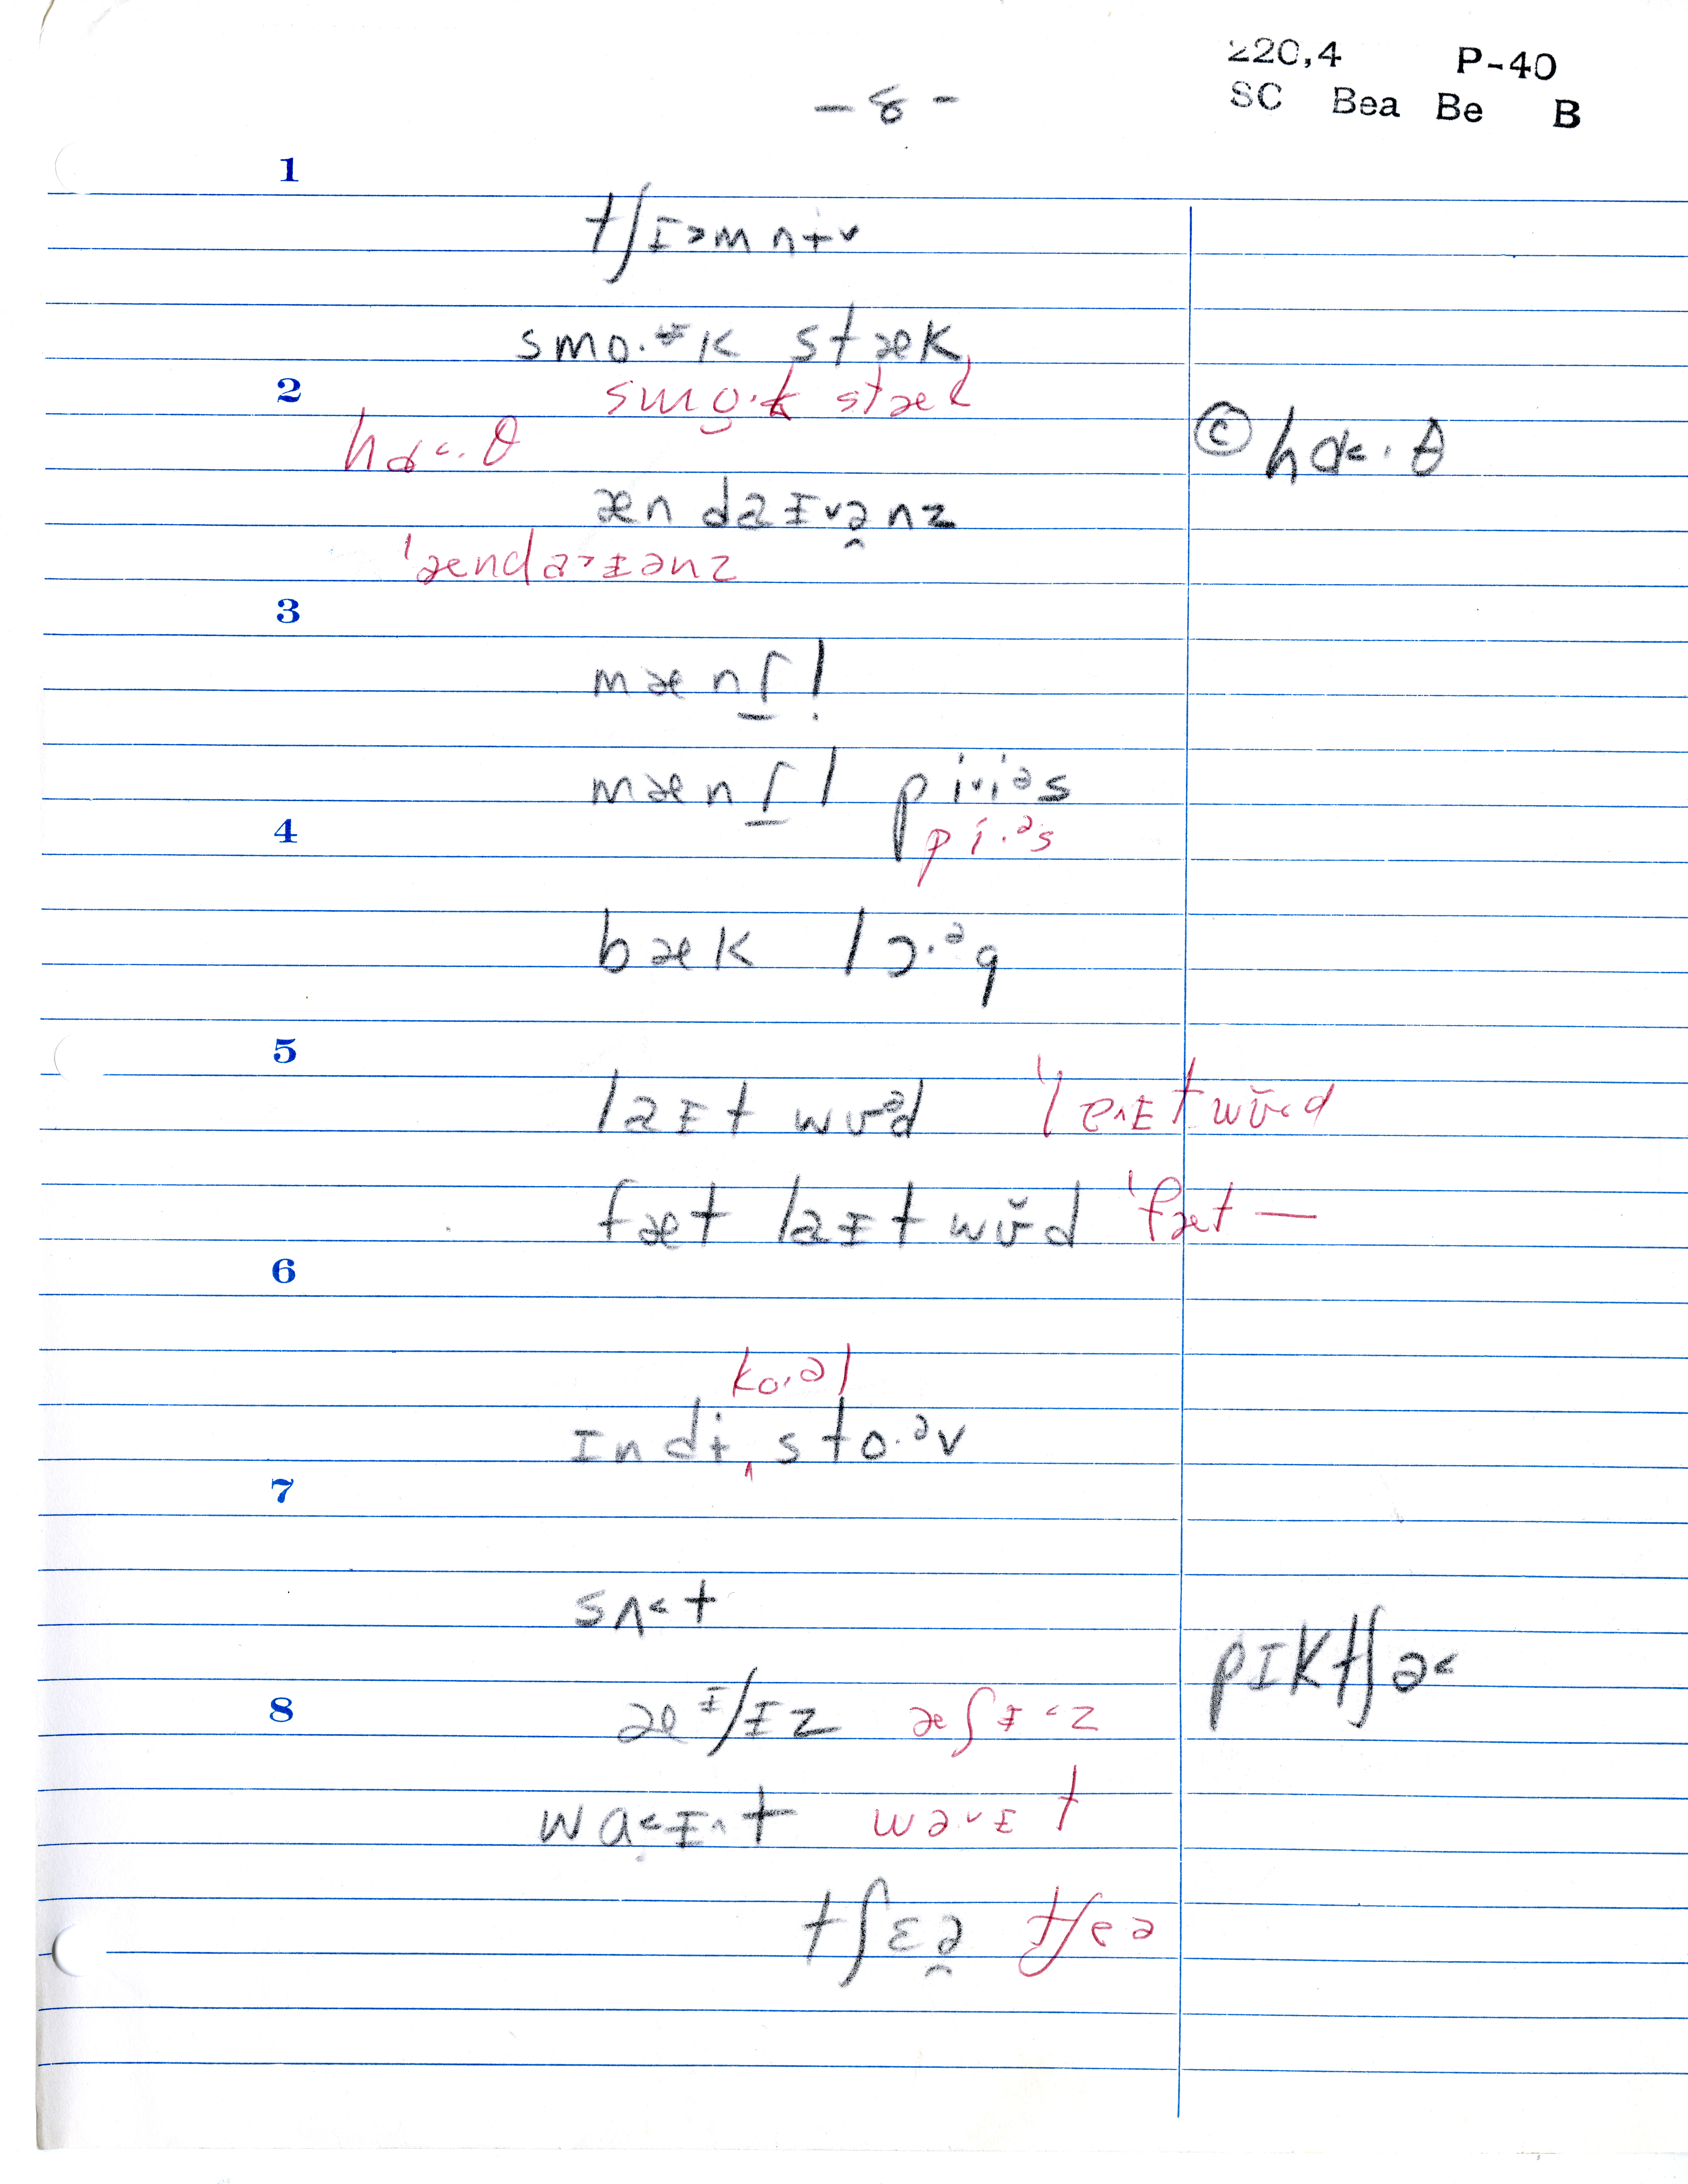 220,4 P-40
SC Bea Be B
- 8 -
1
tʃɪ˃mnɨv
smo·ᵻk stæk
2
smo̯·k stæk
hɑ˂·θ
© hɑ˂·θ
æn daɪvə̯nz
ˈænda˃ɪənz
3
mænʃ̱l̩
mænʃ̱l piˑiᵊs
4
pi·ᵊs
bæk lɔ·ᵊg
5
laɪt wʊᵊd ˈlɐ˄ɪtwʊ̆˂d
fæt laɪt wʊ̆d ˈfæt —
6
ko·əl
ɪndi ‸ sto·ᵊv
7
sʌ˂t
pɪktʃə˂
8
æᶦʃɪz æʃɪ˂z
wa˂ɪ˄t wa·˅ɪt
tʃɛə̯ tʃeə